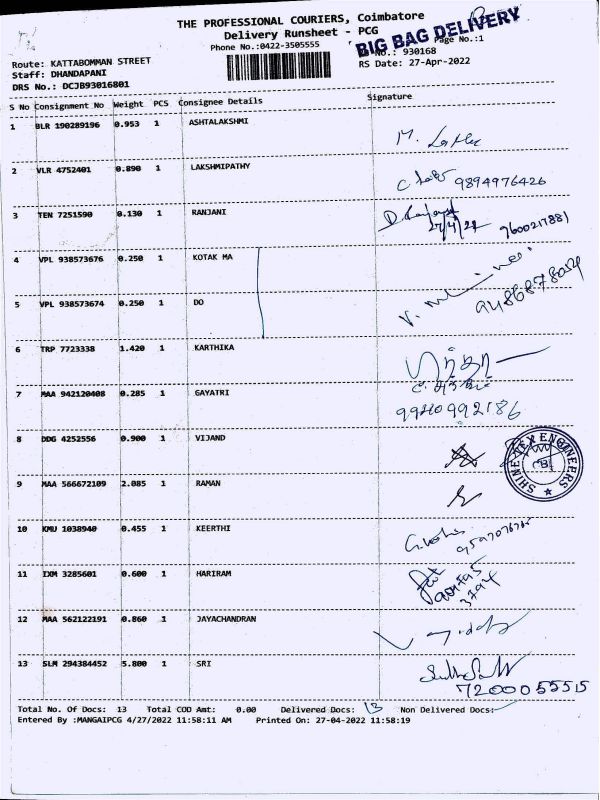 THE PROFESSIONAL COURIERS, Coimbatore
Delivery Runsheet - PCG
Phone No.:0422-3505555
BIG BAG DELIVERY
Page No.:1
No.: 930168
RS Date: 27-Apr-2022
Route: KATTABOMMAN STREET
Staff: DHANDAPANI
DRS No.: DCJB93016801
S No Consignment No Weight PCS Consignee Details Signature
1 BLR 190289196 0.953 1 ASHTALAKSHMI
2 VLR 4752401 0.890 1 LAKSHMIPATHY 9894976426
3 TEN 7251590 0.130 1 RANJANI 27/4/22 9600217881
4 VPL 938573676 0.250 1 KOTAK MA
5 VPL 938573674 0.250 1 DO
6 TRP 7723338 1.420 1 KARTHIKA
7 MAA 942120408 0.285 1 GAYATRI
9940992186
8 DDG 4252556 0.900 1 VIJAND
SHINE TEX ENGINEERS
CBE
9 MAA 566672109 2.085 1 RAMAN
10 KMU 1038940 0.455 1 KEERTHI
11 IXM 3285601 0.600 1 HARIRAM
12 MAA 562122191 0.860 1 JAYACHANDRAN
13 SLM 294384452 5.800 1 SRI
7200055515
Total No. Of Docs: 13 Total COD Amt: 0.00 Delivered Docs: 13 Non Delivered Docs:
Entered By :MANGAIPCG 4/27/2022 11:58:11 AM Printed On: 27-04-2022 11:58:19